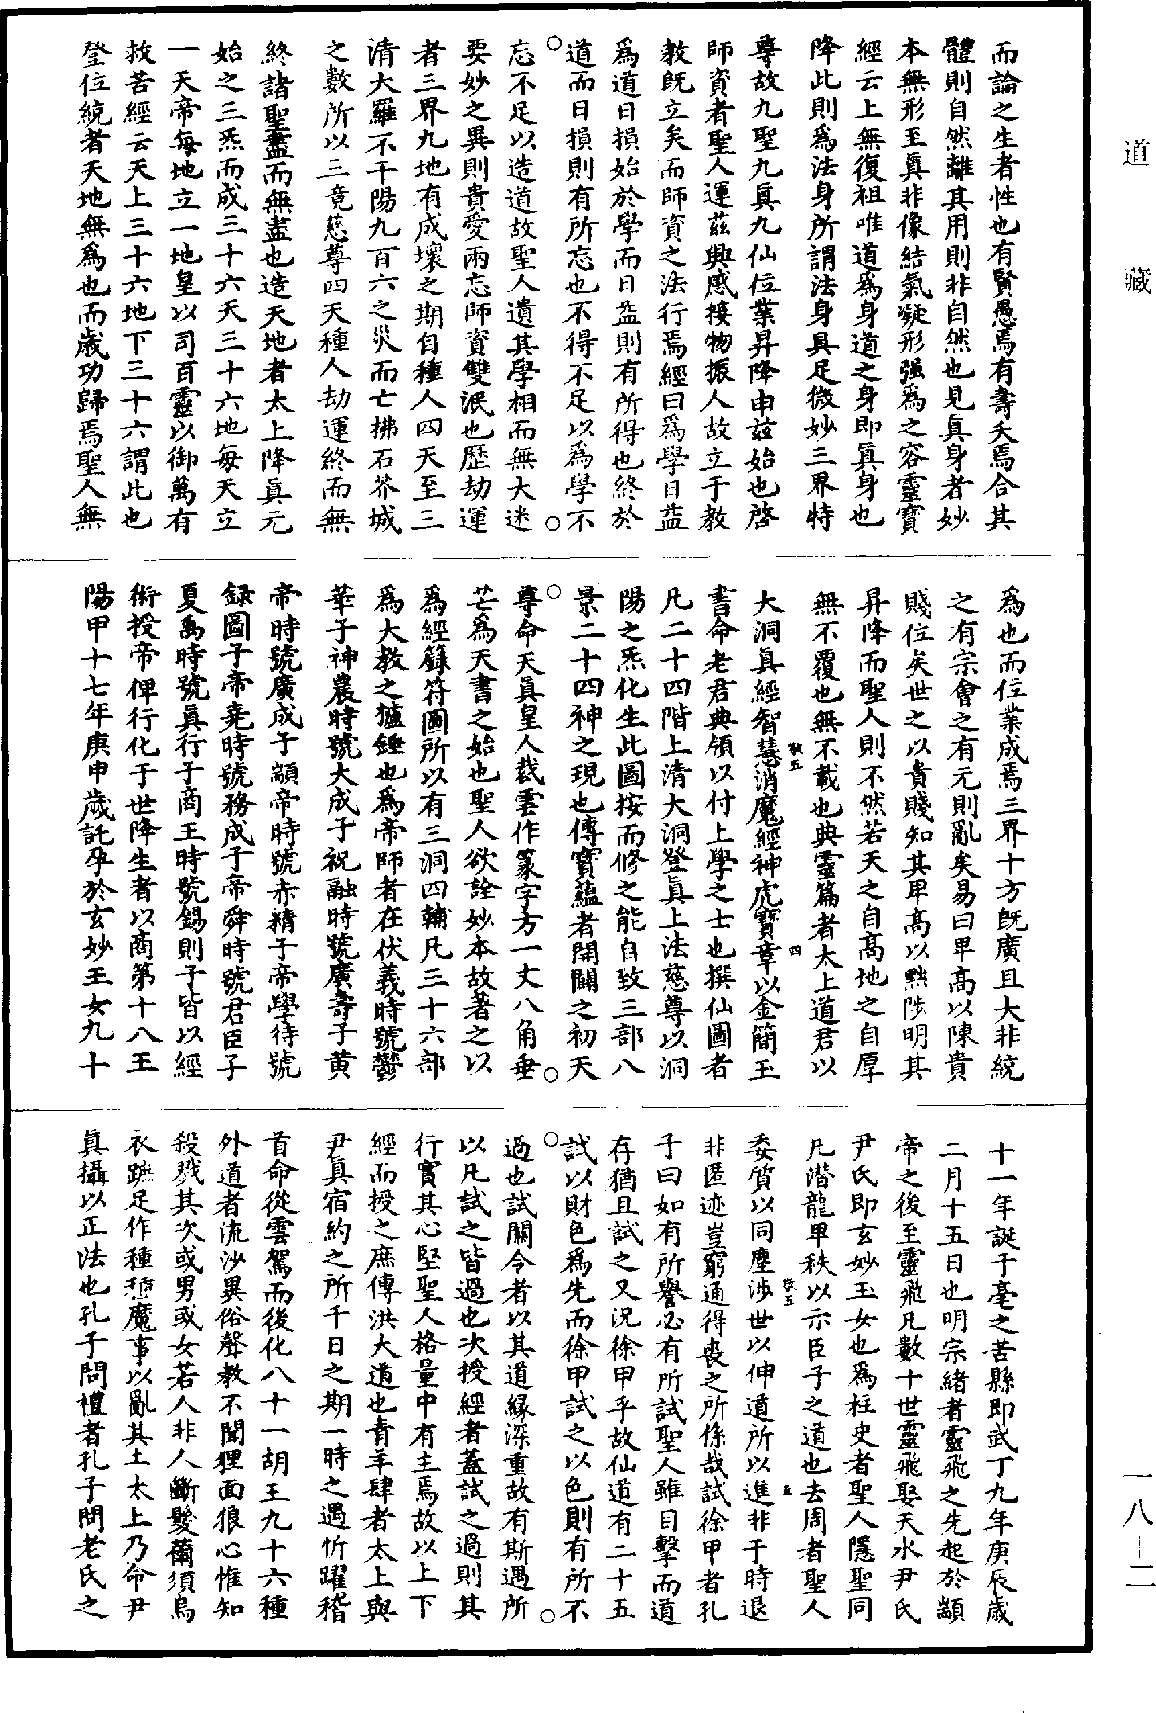 道藏
一八-二
而論之生者性也有賢愚焉有壽夭焉合其
體則自然離其用則非自然也見真身者妙
本無形至真非像結氣凝形强為之容靈寶
經云上無復祖唯道為身道之身即真身也
降此則為法身所謂法身具足微妙三界特
尊故九聖九真九仙位業昇降由兹始也啓
師資者聖人運兹與感接物振人故立于教
教既立矣而師資之法行焉經曰為學日益
為道日損始於學而日益則有所得也終於
道而日損則有所忘也不得不足以為學不
忘不足以造道故聖人遺其學相而無大迷
要妙之異則貴愛兩忘師資雙泯也歷劫運
者三界九地有成壞之期自種人四天至三
清大羅不干陽九百六之災而亡拂石芥城
之數所以三竟慈尊四天種人劫運終而無
終諸聖盡而無盡也造天地者太上降真元
始之三炁而成三十六天三十六地每天立
一天帝每地立一地皇以司百靈以御萬有
救苦經云天上三十六地下三十六謂此也
登位統者天地無為也而歲功歸焉聖人無
為也而位業成焉三界十方既廣且大非統
之有宗會之有元則亂矣易曰卑高以陳貴
賤位矣世之以貴賤知其卑高以黜陟明其
昇降而聖人則不然若天之自高地之自厚
無不覆也無不載也典靈篇者太上道君以
大洞真經智慧消魔經神虎寶章以金簡玉
書命老君典領以付上學之士也撰仙圖者
凡二十四階上清大洞登真上法慈尊以洞
陽之炁化生此圖按而修之能自致三部八
景二十四神之現也傳寶蘊者開闢之初天
尊命天真皇人裁雲作篆字方一丈八角垂
芒為天書之始也聖人欲詮妙本故著之以
為經籙符圖所以有三洞四輔凡三十六部
為大教之爐錘也為帝師者在伏義時號鬱
華子神農時號大成子祝融時號廣壽子黃
帝時號廣成子顓帝時號赤精子帝學待號
録圖子帝堯時號務成子帝舜時號君臣子
夏禹時號真行子商王時號錫則子皆以經
術授帝俾行化于世降生者以商第十八王
陽甲十七年庚申歲託孕於玄妙王女九十
十一年誕于亳之苦縣即武丁九年庚辰歲
二月十五日也明宗緒者靈飛之先起於顓
帝之後至靈飛凡數十世靈飛娶天水尹氏
尹氏即玄妙玉女也為柱史者聖人隱聖同
凡潛龍卑秩以示臣子之道也去周者聖人
委質以同塵涉世以伸道所以進非于時退
非匿迹豈窮通得喪之所係哉試徐甲者孔
子曰如有所譽必有所試聖人雖目擊而道
存猶且試之又況徐甲乎故仙道有二十五
試以財色為先而徐甲試之以色則有所不
過也試關令者以其道緣深重故有斯遇所
以凡試之皆過也次授經者蓋試之過則其
行實其心堅聖人格量中有主焉故以上下
經而授之庶傳洪大道也青羊肆者太上與
尹真宿約之所千日之期一時之遇忻躍稽
首命從雲駕而後化八十一胡王九十六種
外道者流沙異俗聲教不聞狸面狼心惟知
殺戮其次或男或女若人非人斷髮薾須烏
衣跣足作種種魔事以亂其土太上乃命尹
真攝以正法也孔子問禮者孔子問老氏之